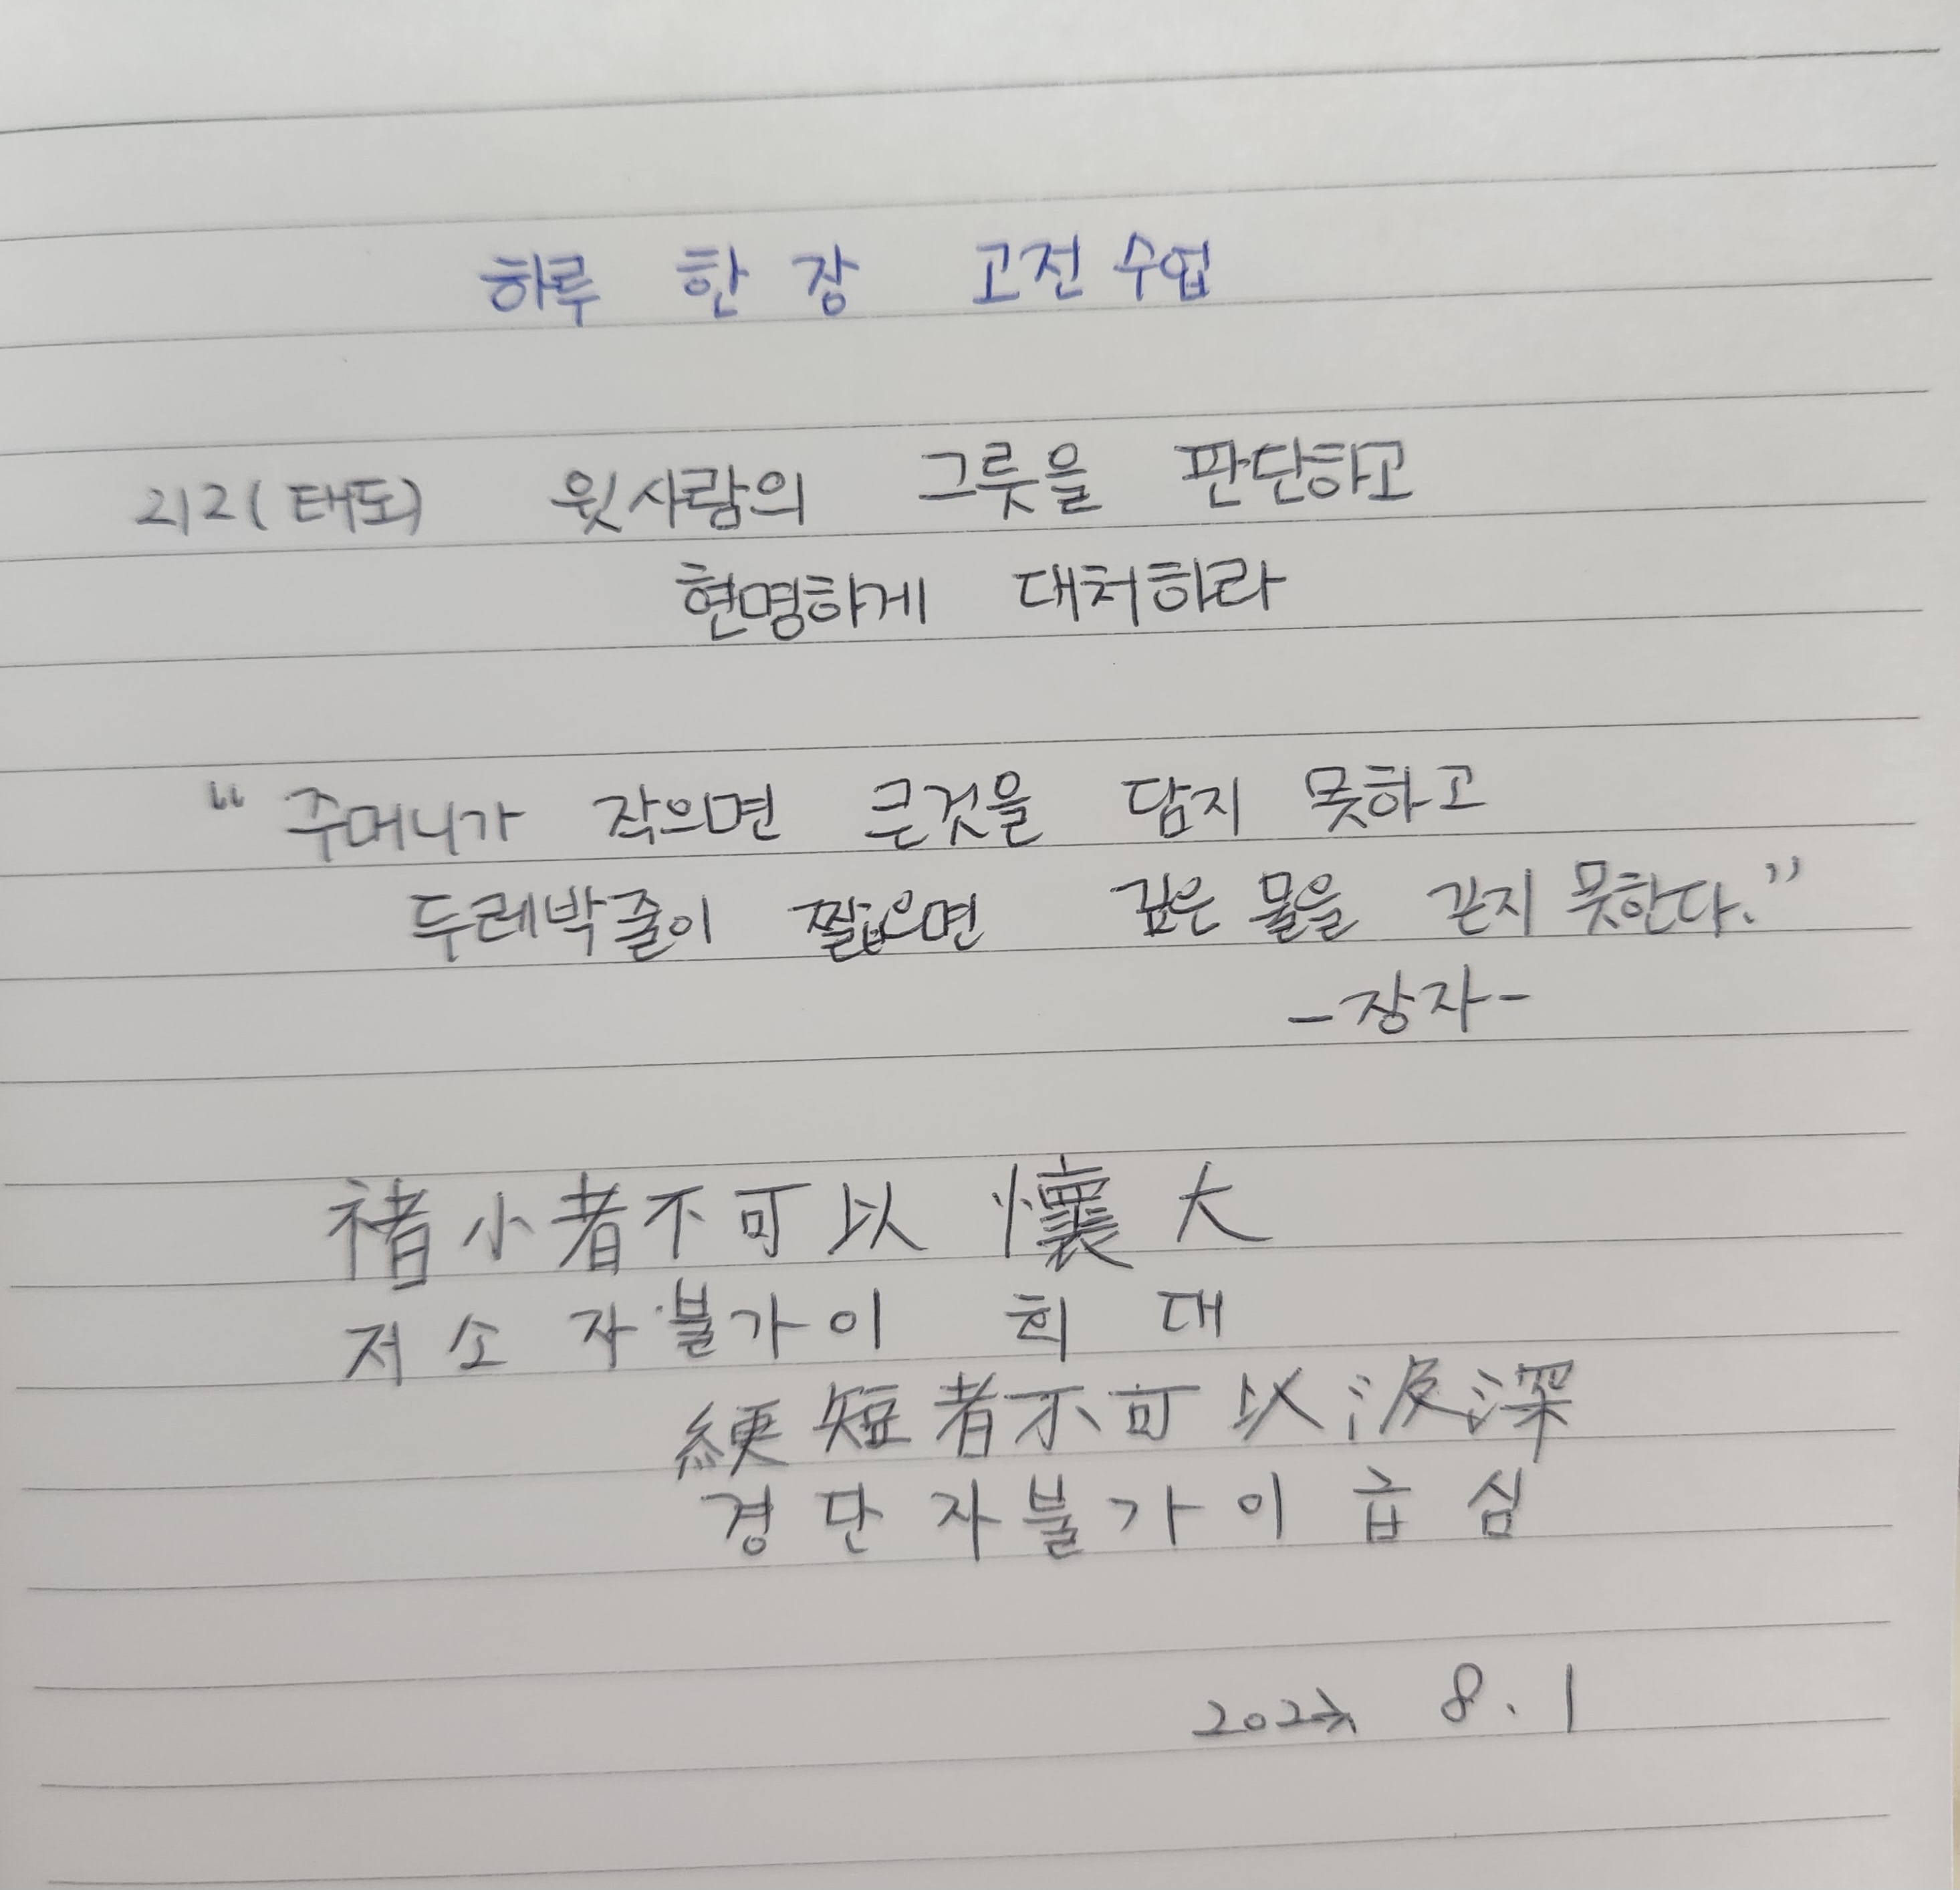 하루 한 장 고전 수업
212 (태도) 윗사람의 그릇을 판단하고
현명하게 대처하라
“주머니가 작으면 큰것을 담지 못하고
두레박줄이 짧으면 깊은 물을 긷지 못한다.”
-장자-
褚小者不可以 懷大
저소자불가이 회 대
綆短者不可以汲深
경단자불가이급심
8.1